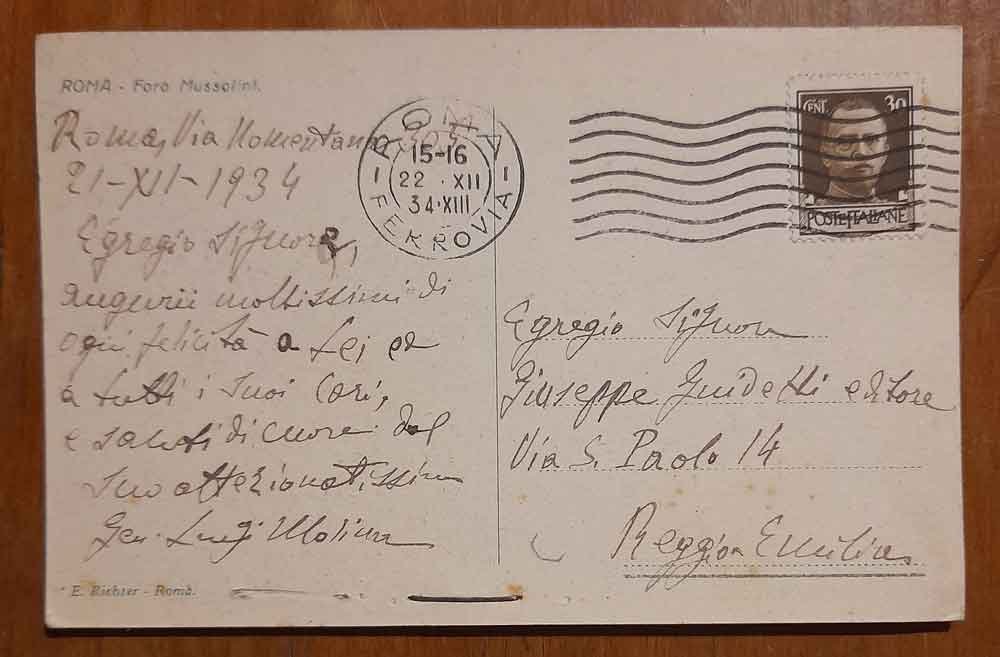 ROMA - Foro Mussolini.
Roma, Via Nomentana
21-XII-1934
Egregio Signore,
augurii moltissimi di
ogni felicità a Lei ed
a tutti i Suoi Cari,
e saluti di cuore dal
Suo affezionatissimo
Gen. Luigi
E. Richter - Roma.
ROMA
15-16
22 . XII
34·XIII
FERROVIA
CENT. 30
POSTE ITALIANE
Egregio Signor
Giuseppe Guidetti editore
Via S. Paolo 14
Reggio Emilia